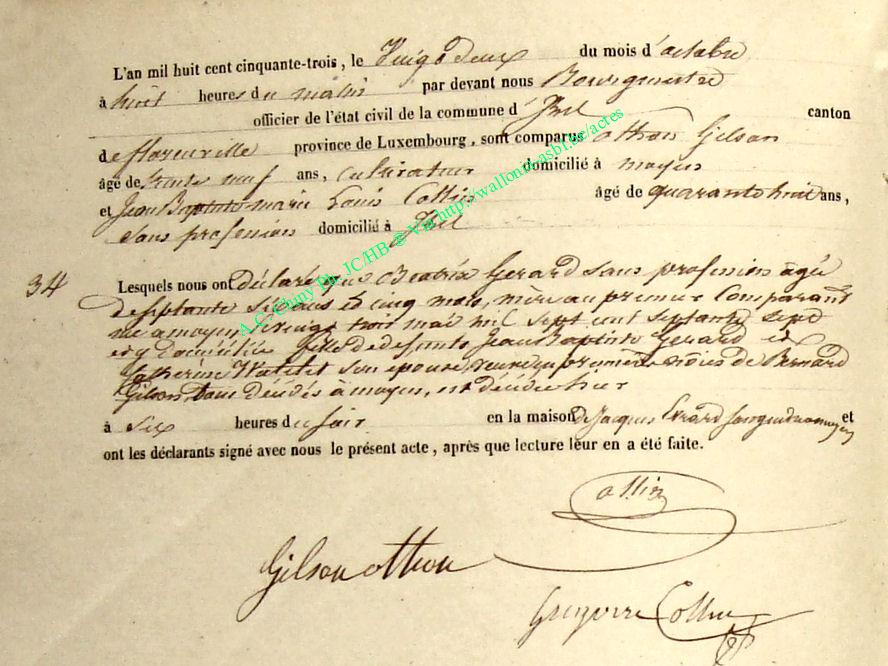 L'an mil huit cent cinquante-trois, le Vingt deux du mois d'octobre
à huit heures du matin par devant nous Bourgmestre
officier de l'état civil de la commune d'Izel canton
de florenville province de Luxembourg, sont comparus othon Gilson
âgé de trente neuf ans, cultivateur domicilié à moyen
et Jean Baptiste marie Louis Collin âgé de quarante huit ans,
sans profession domicilié à Izel
34 Lesquels nous ont déclaré que Beatrix Gerard sans profession âgée
de septante six ans et cinq mois, mère au premier Comparant
née a moyen le vingt trois mai mil sept cent septante sept
et y domiciliée fille de defunts Jean Baptiste Gerard et
Catherine Watelet son epouse, veuve en premières nôces de Bernard
Gilson tous décédés à moyen, est décédée hier
à six heures du soir en la maison de Jacques Evrard a moyen et
ont les déclarants signé avec nous le présent acte, après que lecture leur en a été faite.
Collin
Gilson othon
Gregoire Collin
A.C. Chiny Ph. JC/HB @ Via http://wallonia-asbl.be/actes